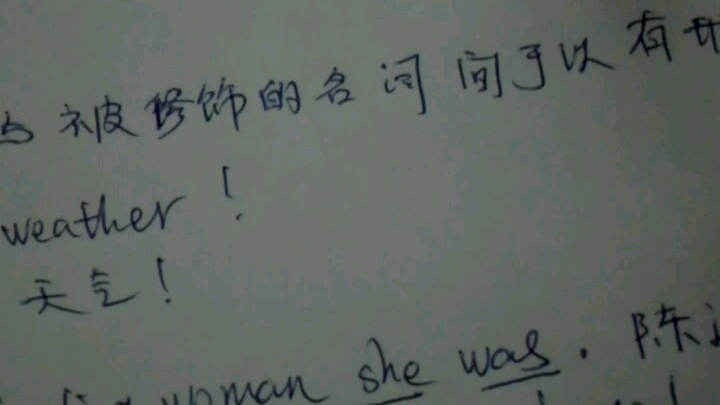 与被修饰的名词间可以有
weather!
天气!
woman she was. 陈